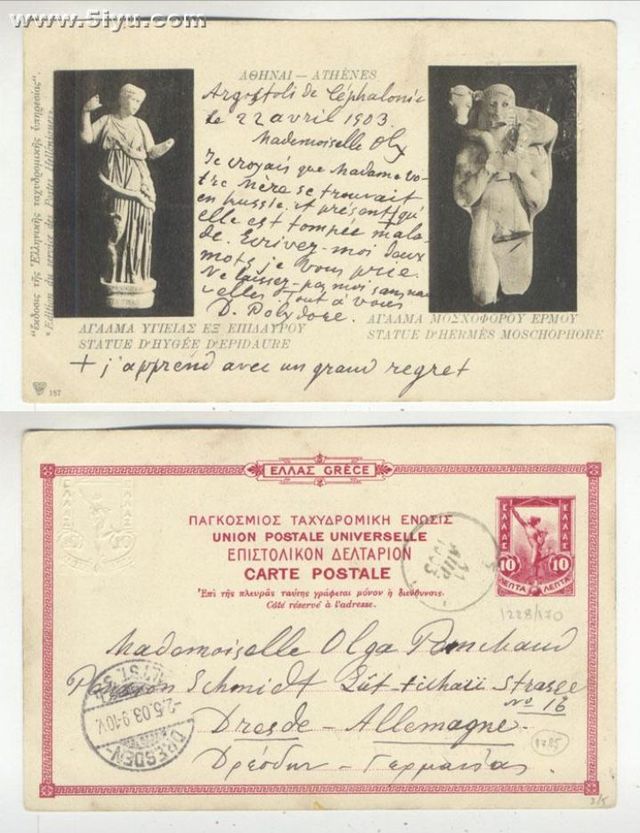 www.5iyu.com
ΑΘΗΝΑΙ — ATHÈNES
Argostoli de Céphalonie
le 22 avril 1903.
Mademoiselle Olga
Je croyais que Madame vo-
tre Mère se trouvait
en Russie, et présent + qu'
elle est tombée mala-
de. Ecrivez-moi deux
mots, je vous prie.
Ne laissez-pas moi sans nou-
velles Tout à vous
D. Polydore.
"Έκδοσις τῆς Ἑλληνικῆς ταχυδρομικῆς ὑπηρεσίας"
"Edition du service des Postes Helléniques"
ΑΓΑΛΜΑ ΥΓΙΕΙΑΣ ΕΞ ΕΠΙΔΑΥΡΟΥ
STATUE D'HYGÉE D'EPIDAURE
ΑΓΑΛΜΑ ΜΟΣΧΟΦΟΡΟΥ ΕΡΜΟΥ
STATUE D'HERMÈS MOSCHOPHORE
+ j'apprend avec un grand regret
157
ΕΛΛΑΣ GRÈCE
ΕΛΛΑΣ
ΕΛΛΑΣ
10
10
ΠΑΓΚΟΣΜΙΟΣ ΤΑΧΥΔΡΟΜΙΚΗ ΕΝΩΣΙΣ
UNION POSTALE UNIVERSELLE
ΕΠΙΣΤΟΛΙΚΟΝ ΔΕΛΤΑΡΙΟΝ
CARTE POSTALE
Ἐπὶ τῆς πλευρᾶς ταύτης γράφεται μόνον ἡ διεύθυνσις.
Côté réservé à l'adresse.
ΑΠΡ
1903
ΕΛΛΑΣ
ΕΛΛΑΣ
10 10
ΛΕΠΤΑ ΛΕΠΤΑ
1228/170
Mademoiselle Olga
Pension Schmidt Lüttichau Strasse
No 16
Dresde - Allemagne.
Δρέσδην - Γερμανίας
DRESDEN
ALTST.
-2.5.03.9-10V.
8785
3/5